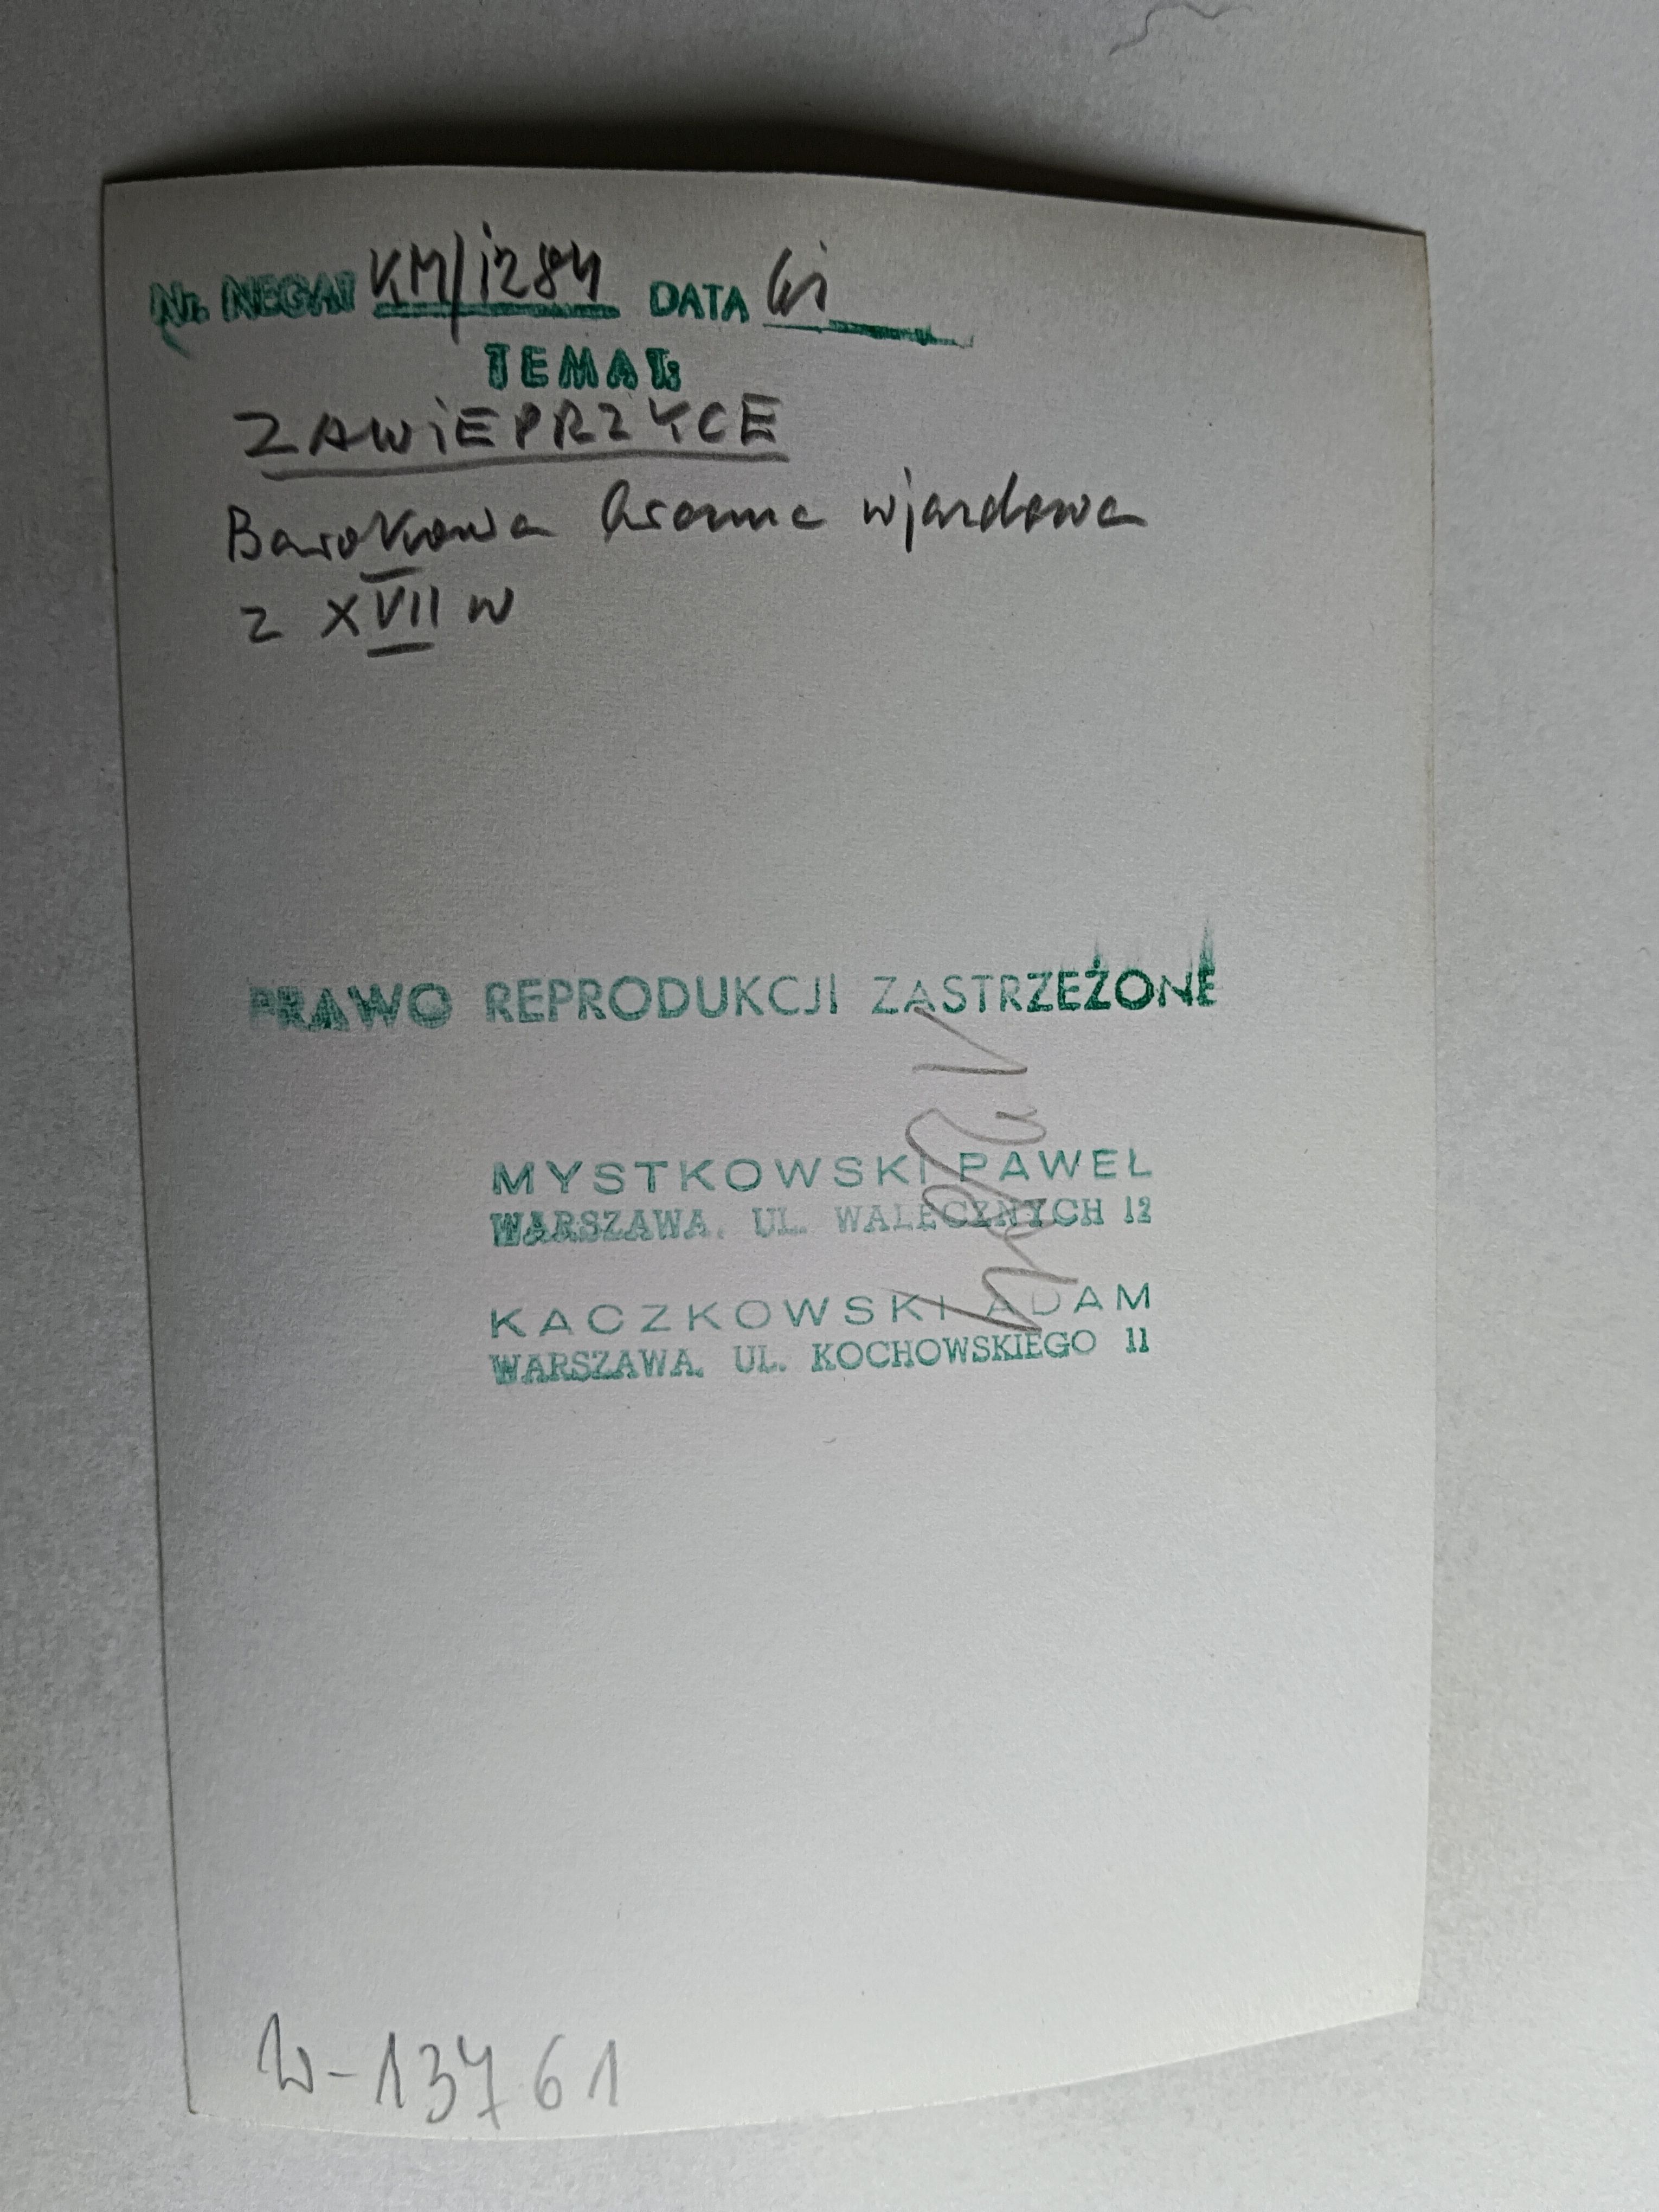 Nr. NEGAT KM/1284 DATA
TEMAT:
ZAWIEPRZYCE
Barokowa brama wjazdowa
z XVII w
PRAWO REPRODUKCJI ZASTRZEŻONE
MYSTKOWSKI PAWEŁ
WARSZAWA, UL. WALECZNYCH 12
KACZKOWSKI ADAM
WARSZAWA, UL. KOCHOWSKIEGO 11
W-13761